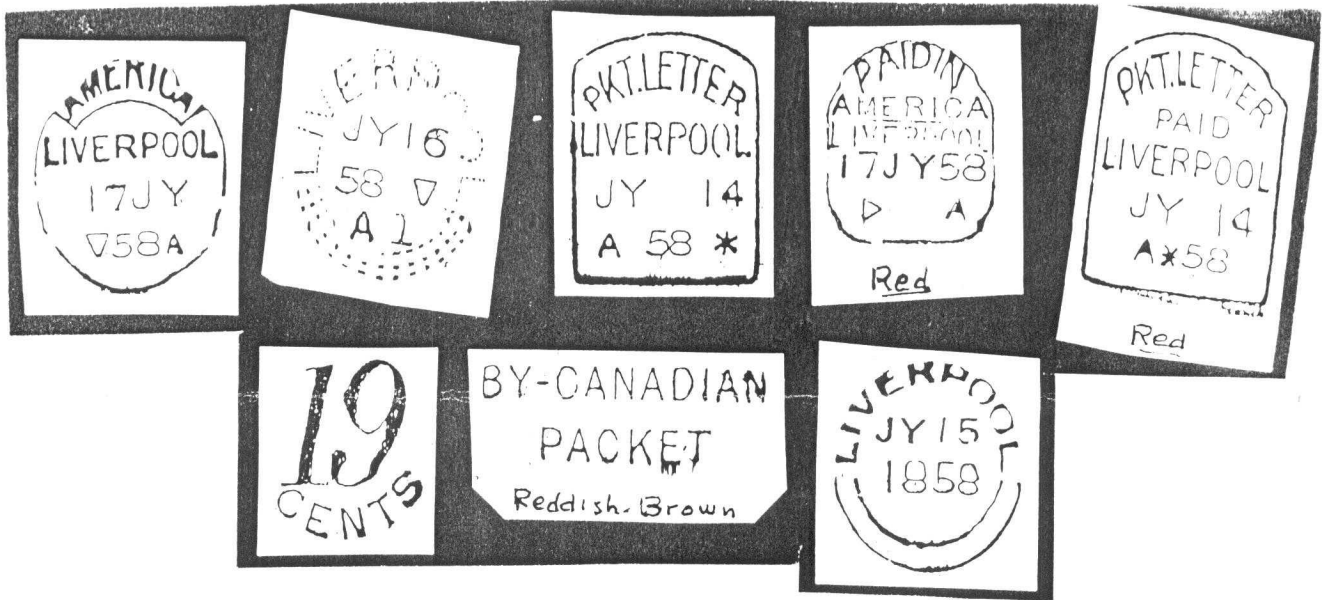 AMERICA
LIVERPOOL
17JY
▽58A
LIVERPOOL
JY16
58 ▽
A 1
PKT.LETTER
LIVERPOOL
JY 14
A 58 *
PAID IN
AMERICA
LIVERPOOL
17JY58
▷ A
Red
PKT.LETTER
PAID
LIVERPOOL
JY 14
A*58
Red
19
CENTS
BY-CANADIAN
PACKET
Reddish-Brown
LIVERPOOL
JY15
1858